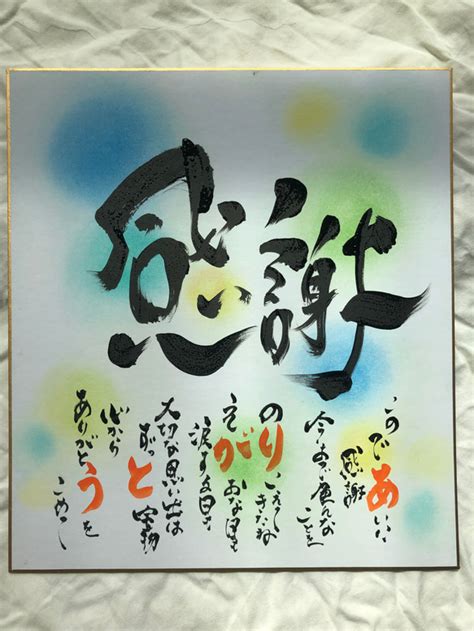 感謝
このであいに
感謝
今まで色んな
ことを
のりこえて
きたね
えがおな日も
涙する日も
大切な思い出は
ずっと宝物
心から
ありがとうを
こめて